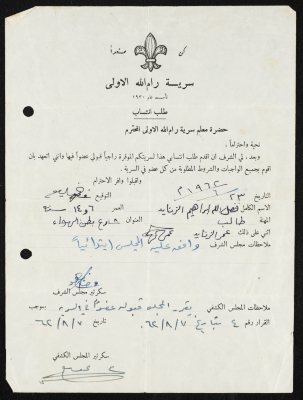 كن مستعداً
سرية رام الله الاولى
تأسست عام ١٩٣٠
طلب انتساب
حضرة معلم سرية رام الله الاولى المحترم
تحية واحتراماً ،
وبعد ، لي الشرف ان اقدم طلب انتسابي هذا لسريتكم الموقرة راجياً قبولي عضواً فيها واني اتعهد بان
اقوم بجميع الواجبات والشروط المطلوبة من كل عضو في السرية .
وتقبلوا وافر الاحترام
التاريخ ٢٣ / ٦ / ١٩٦٢ التوقيع
الاسم الكامل ابراهيم العمر ١٤ سنة
المهنة طالب العنوان شارع
اثني على ذلك
ملاحظات مجلس الشرف وافق عليه المجلس
سكرتير مجلس الشرف
ملاحظات المجلس الكشفي يقرر المجلس قبوله عضواً في السرية بموجب
القرار رقم ٤ بتاريخ ٦٢/٨/٧ تاريخ ٦٢/٨/٧
سكرتير المجلس الكشفي